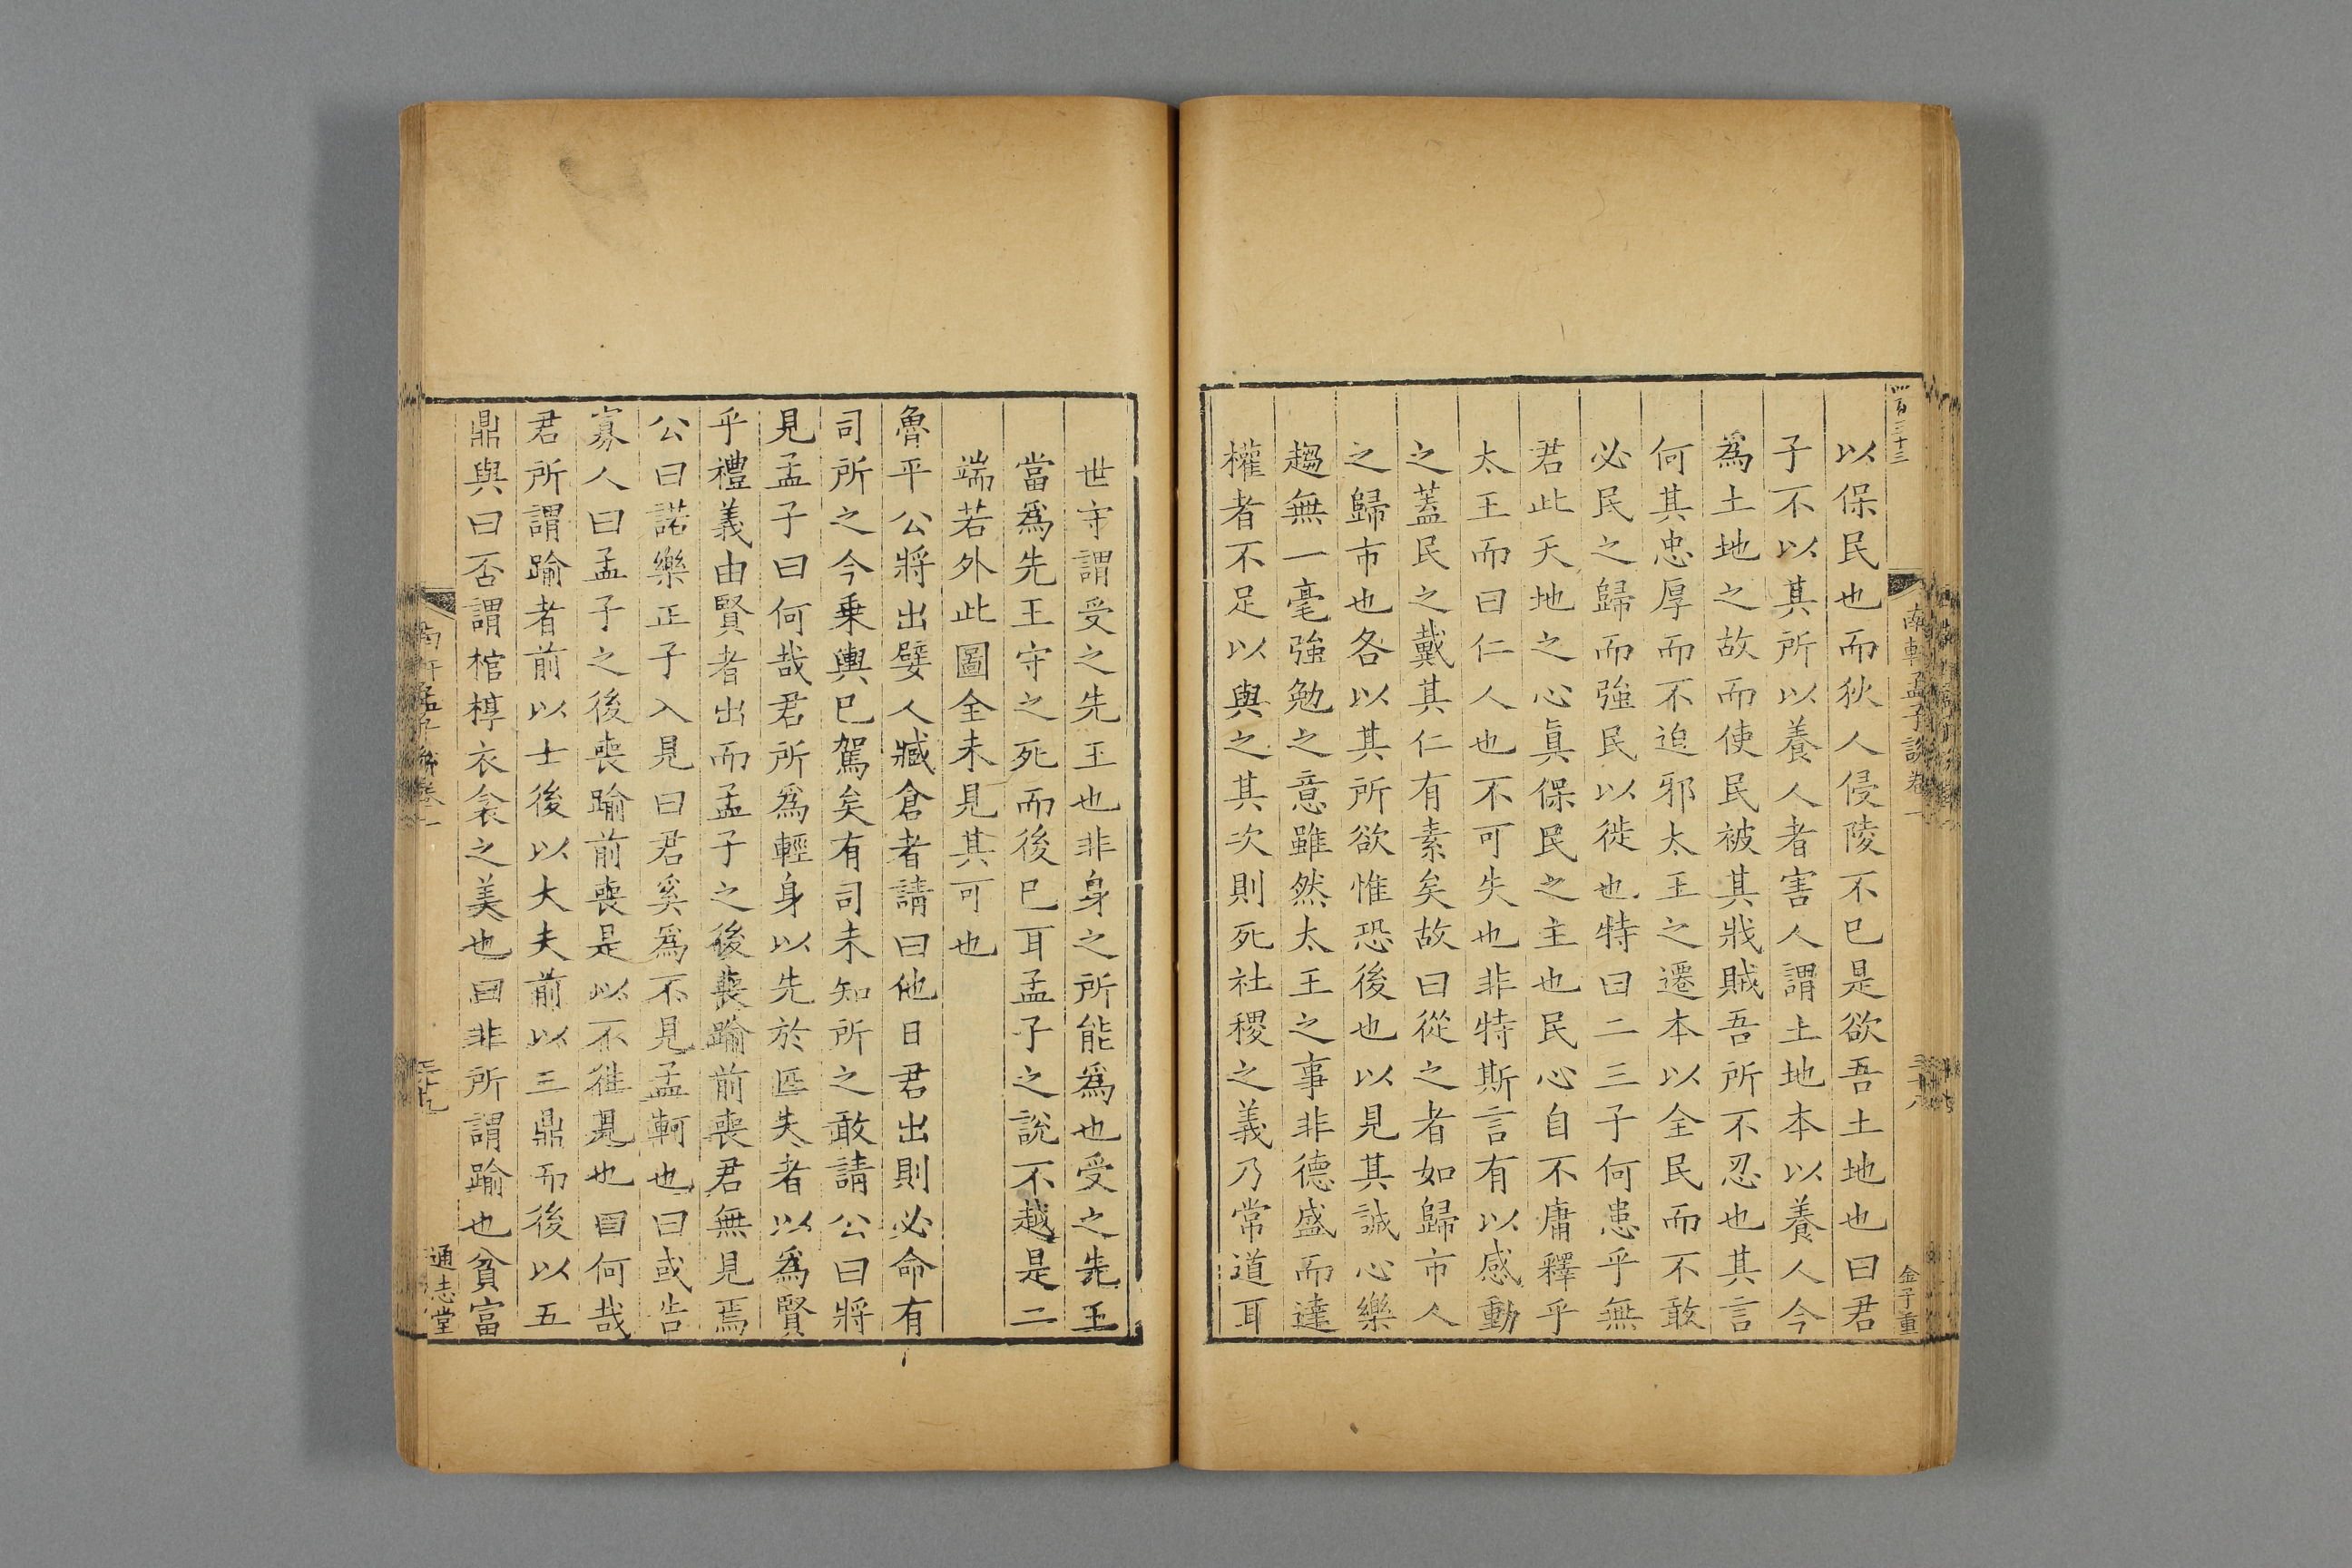 四百三十三
南軒孟子說卷一
三十八
金子重
以保民也而狄人侵陵不已是欲吾土地也曰君
子不以其所以養人者害人謂土地本以養人今
爲土地之故而使民被其戕賊吾所不忍也其言
何其忠厚而不迫邪太王之遷本以全民而不敢
必民之歸而強民以徙也特曰二三子何患乎無
君此天地之心眞保民之主也民心自不庸釋乎
太王而曰仁人也不可失也非特斯言有以感動
之蓋民之戴其仁有素矣故曰從之者如歸市人
之歸市也各以其所欲惟恐後也以見其誠心樂
趨無一毫強勉之意雖然太王之事非德盛而達
權者不足以與之其次則死社稷之義乃常道耳
世守謂受之先王也非身之所能爲也受之先王
當爲先王守之死而後已耳孟子之說不越是二
端若外此圖全未見其可也
魯平公將出嬖人臧倉者請曰他日君出則必命有
司所之今乗輿已駕矣有司未知所之敢請公曰將
見孟子曰何哉君所爲輕身以先於匹夫者以爲賢
乎禮義由賢者出而孟子之後喪踰前喪君無見焉
公曰諾樂正子入見曰君奚爲不見孟軻也曰或告
寡人曰孟子之後喪踰前喪是以不往見也曰何哉
君所謂踰者前以士後以大夫前以三鼎而後以五
鼎與曰否謂棺椁衣衾之美也曰非所謂踰也貧富
南軒孟子說卷一
三十九
通志堂